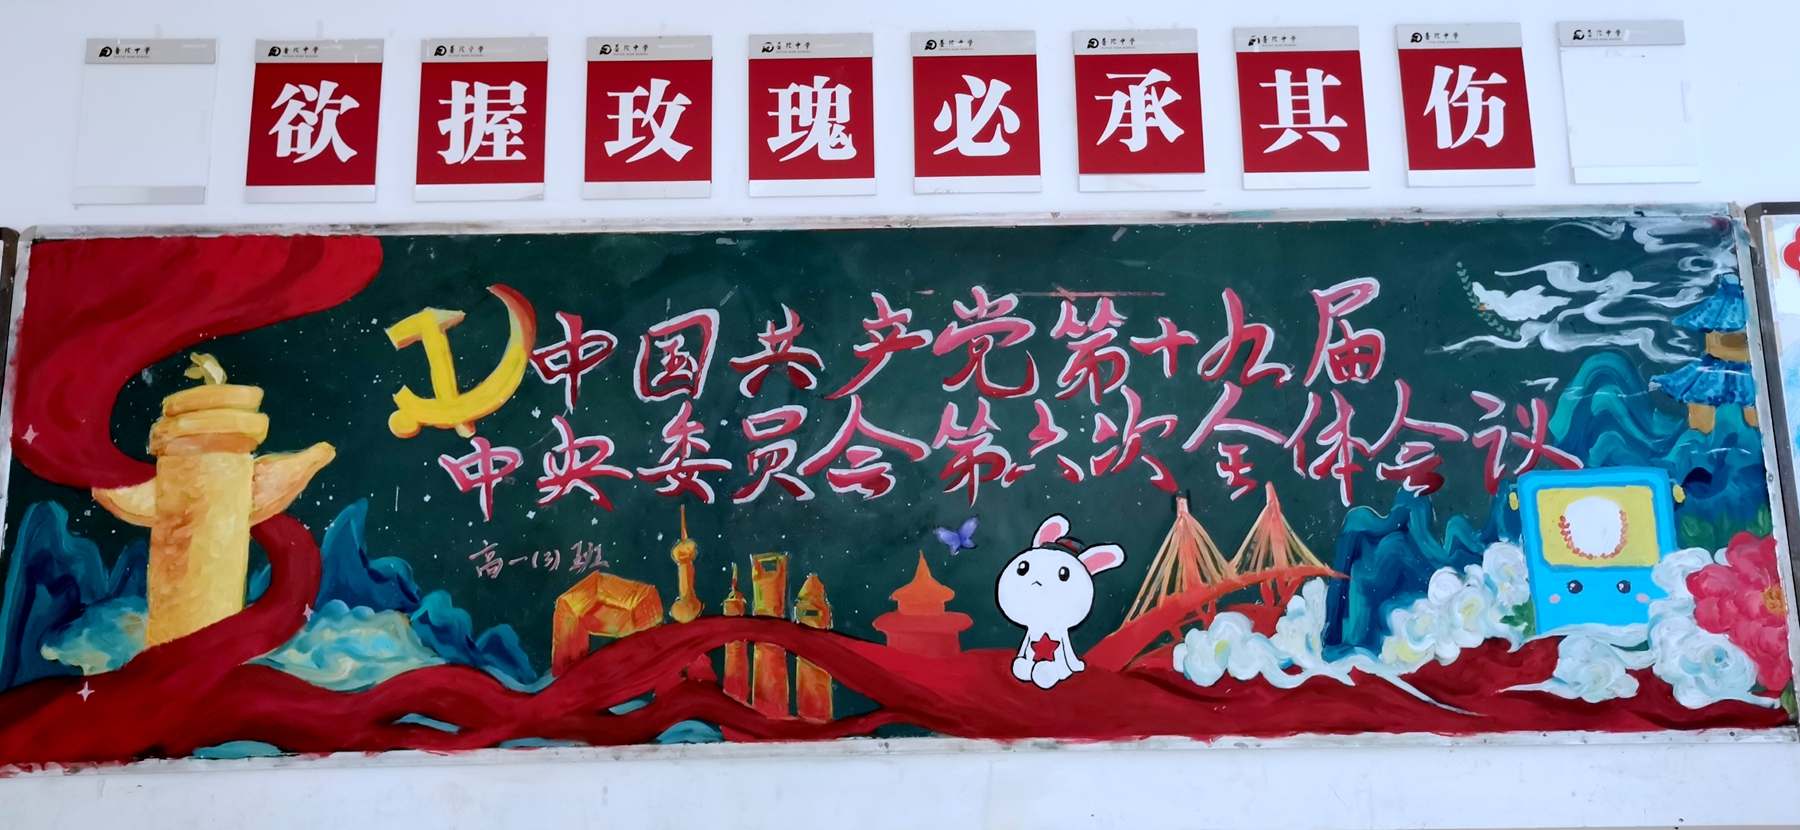 欲握玫瑰必承其伤
中国共产党第十九届
中央委员会第六次全体会议
高一(3)班